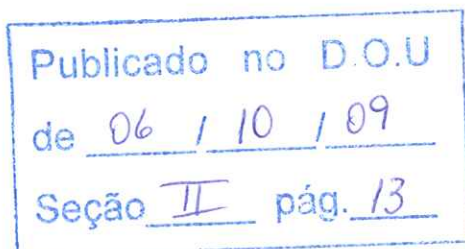 Publicado no D.O.U
de 06 / 10 / 09
Seção II pág. 13